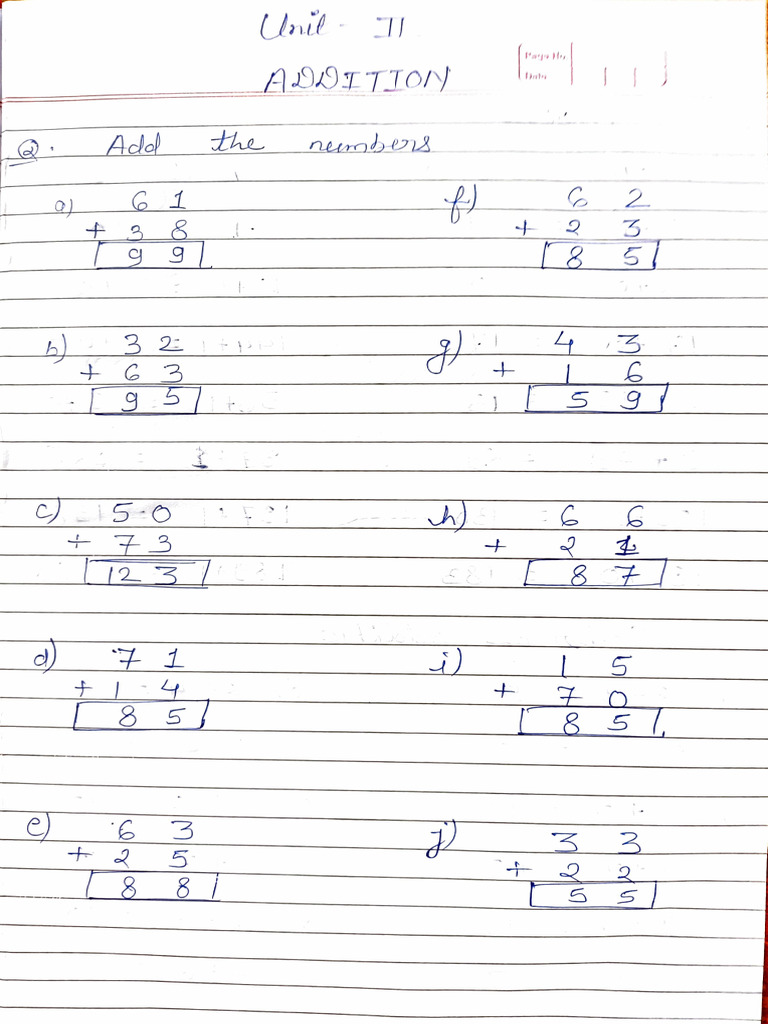 Unit - II
ADDITION
Page No
Date
Q. Add the numbers
a) 61 f) 62
+ 38 + 23
99 85
b) 32 g) 43
+ 63 + 16
95 59
c) 50 h) 66
+ 73 + 21
123 87
d) 71 i) 15
+ 14 + 70
85 85
e) 63 j) 33
+ 25 + 22
88 55